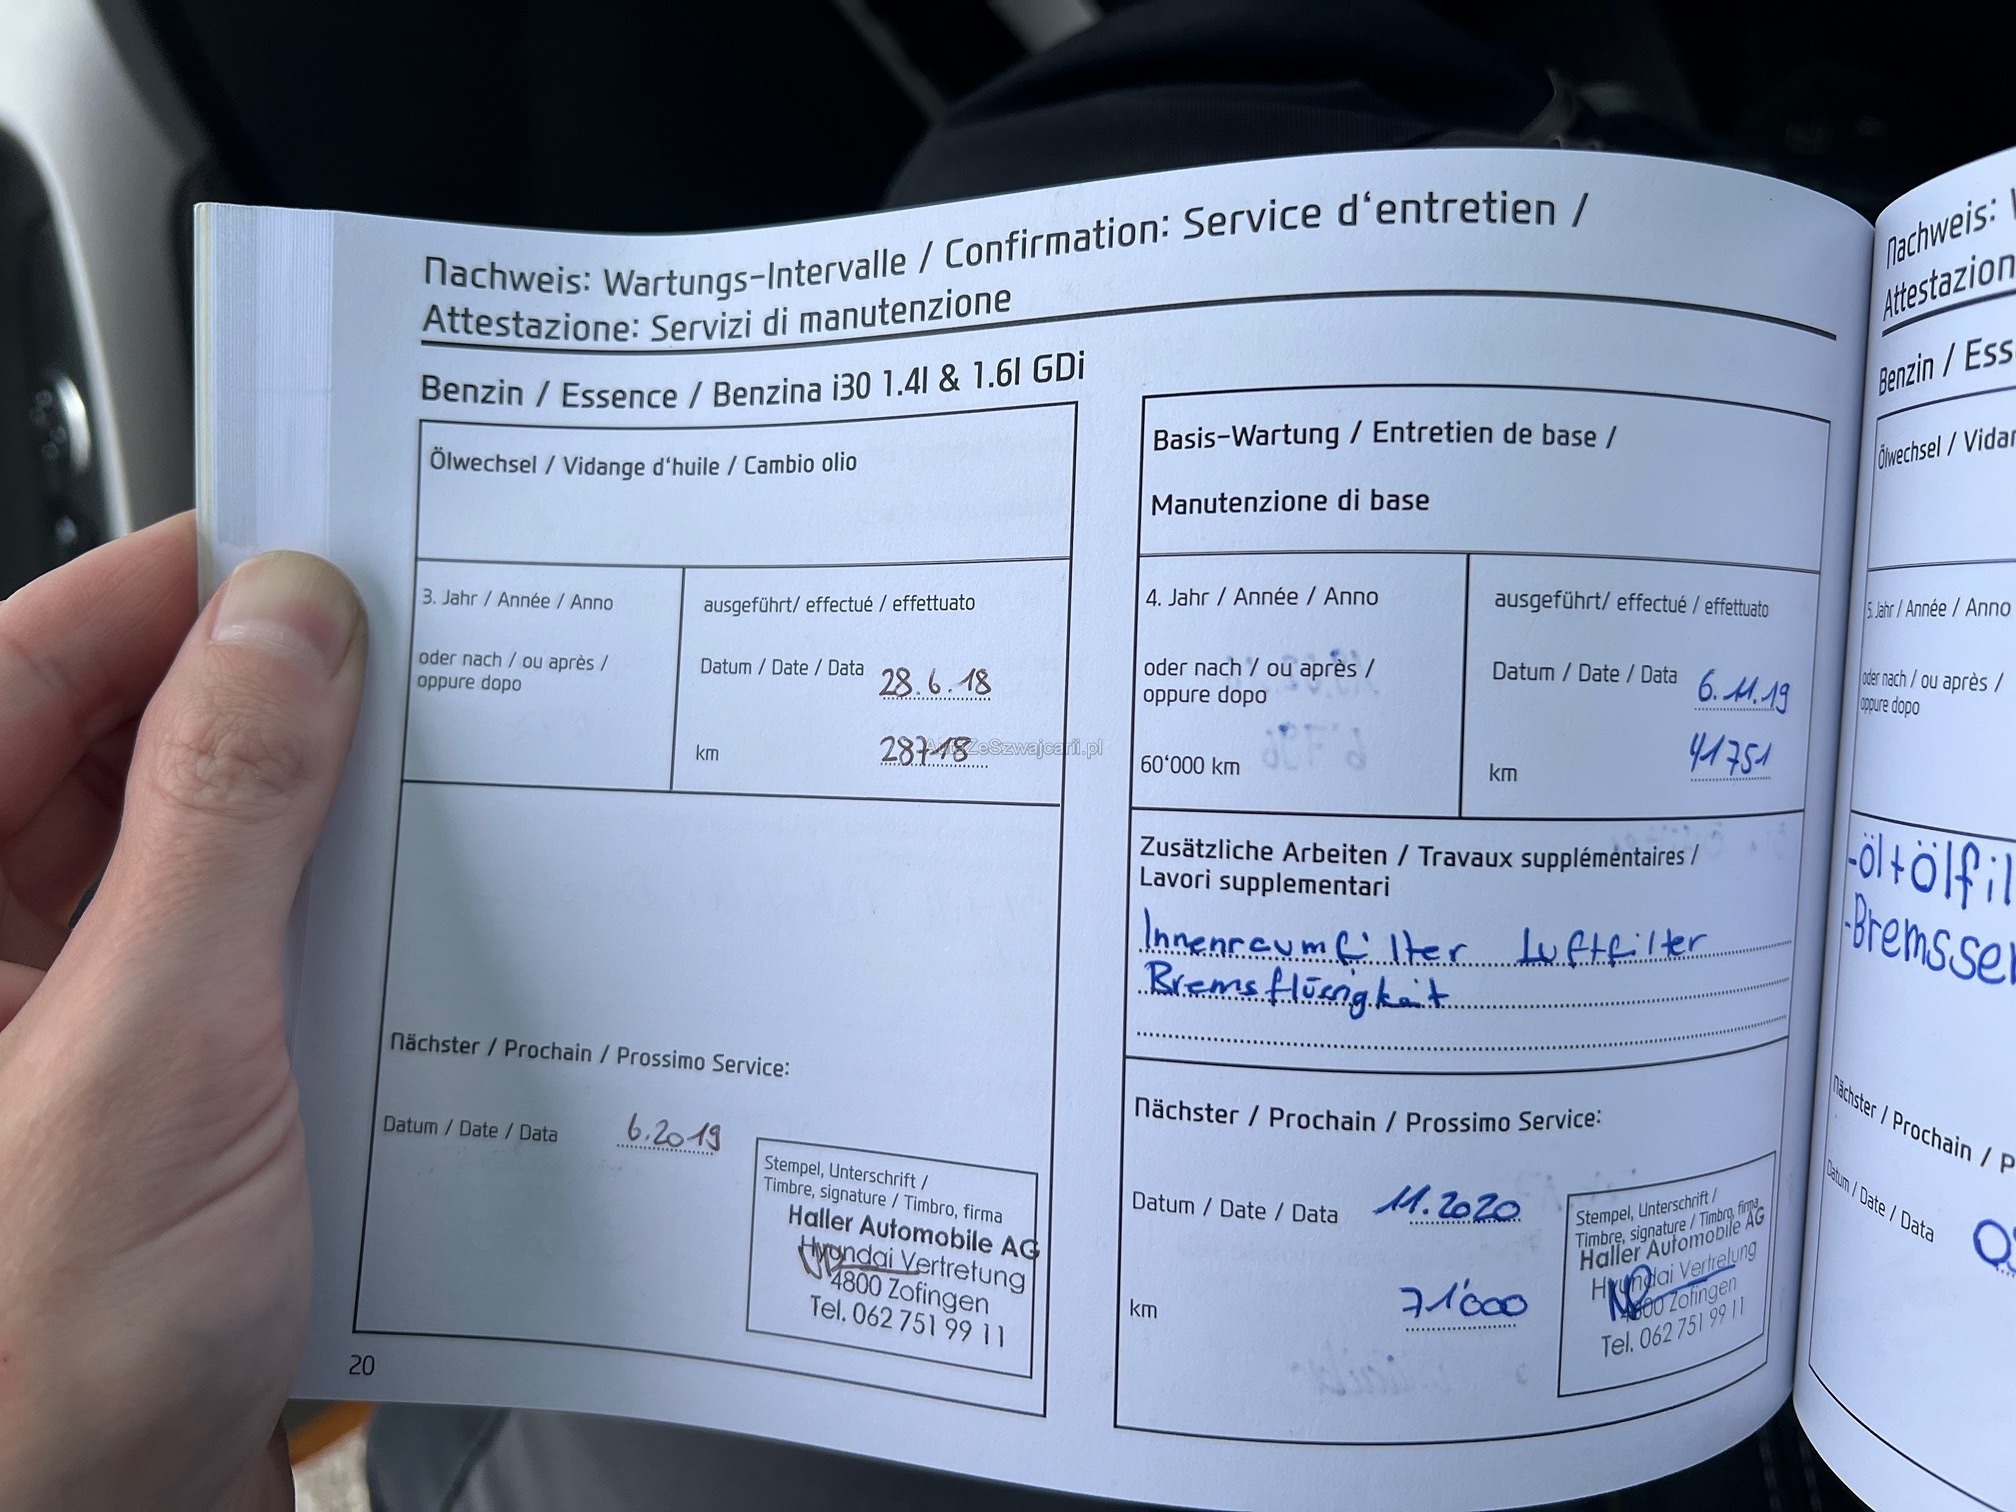 Nachweis: Wartungs-Intervalle / Confirmation: Service d'entretien /
Attestazione: Servizi di manutenzione
Benzin / Essence / Benzina i30 1.4l & 1.6l GDi
Ölwechsel / Vidange d'huile / Cambio olio
3. Jahr / Année / Anno
oder nach / ou après /
oppure dopo
ausgeführt/ effectué / effettuato
Datum / Date / Data 28.6.18
km 28718
AutoZeSzwajcarii.pl
Nächster / Prochain / Prossimo Service:
Datum / Date / Data 6.2019
Stempel, Unterschrift /
Timbre, signature / Timbro, firma
Haller Automobile AG
Hyundai Vertretung
4800 Zofingen
Tel. 062 751 99 11
20
Basis-Wartung / Entretien de base /
Manutenzione di base
4. Jahr / Année / Anno
oder nach / ou après /
oppure dopo
60'000 km
ausgeführt/ effectué / effettuato
Datum / Date / Data 6.11.19
km 41751
Zusätzliche Arbeiten / Travaux supplémentaires /
Lavori supplementari
Innenraumfilter Luftfilter
Bremsflüssigkeit
Nächster / Prochain / Prossimo Service:
Datum / Date / Data 11.2020
km 71'000
Stempel, Unterschrift /
Timbre, signature / Timbro, firma
Haller Automobile AG
Hyundai Vertretung
4800 Zofingen
Tel. 062 751 99 11
Nachweis:
Attestazion
Benzin / Ess
Ölwechsel / Vidan
5. Jahr / Année / Anno
oder nach / ou après /
oppure dopo
-öl+ölfil
-Bremsse
Nächster / Prochain / P
Datum / Date / Data